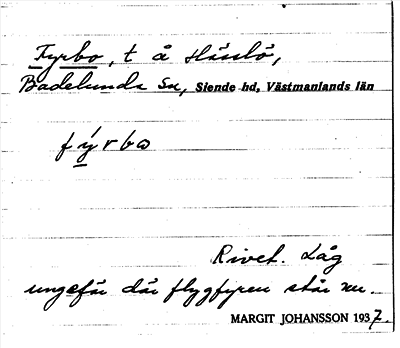 Fyrbo, t å Hässlö,
Badelunda sn, Siende hd, Västmanlands län
fýrbω
Rivet. Låg
ungefär där flygfyren står nu.
MARGIT JOHANSSON 1937.